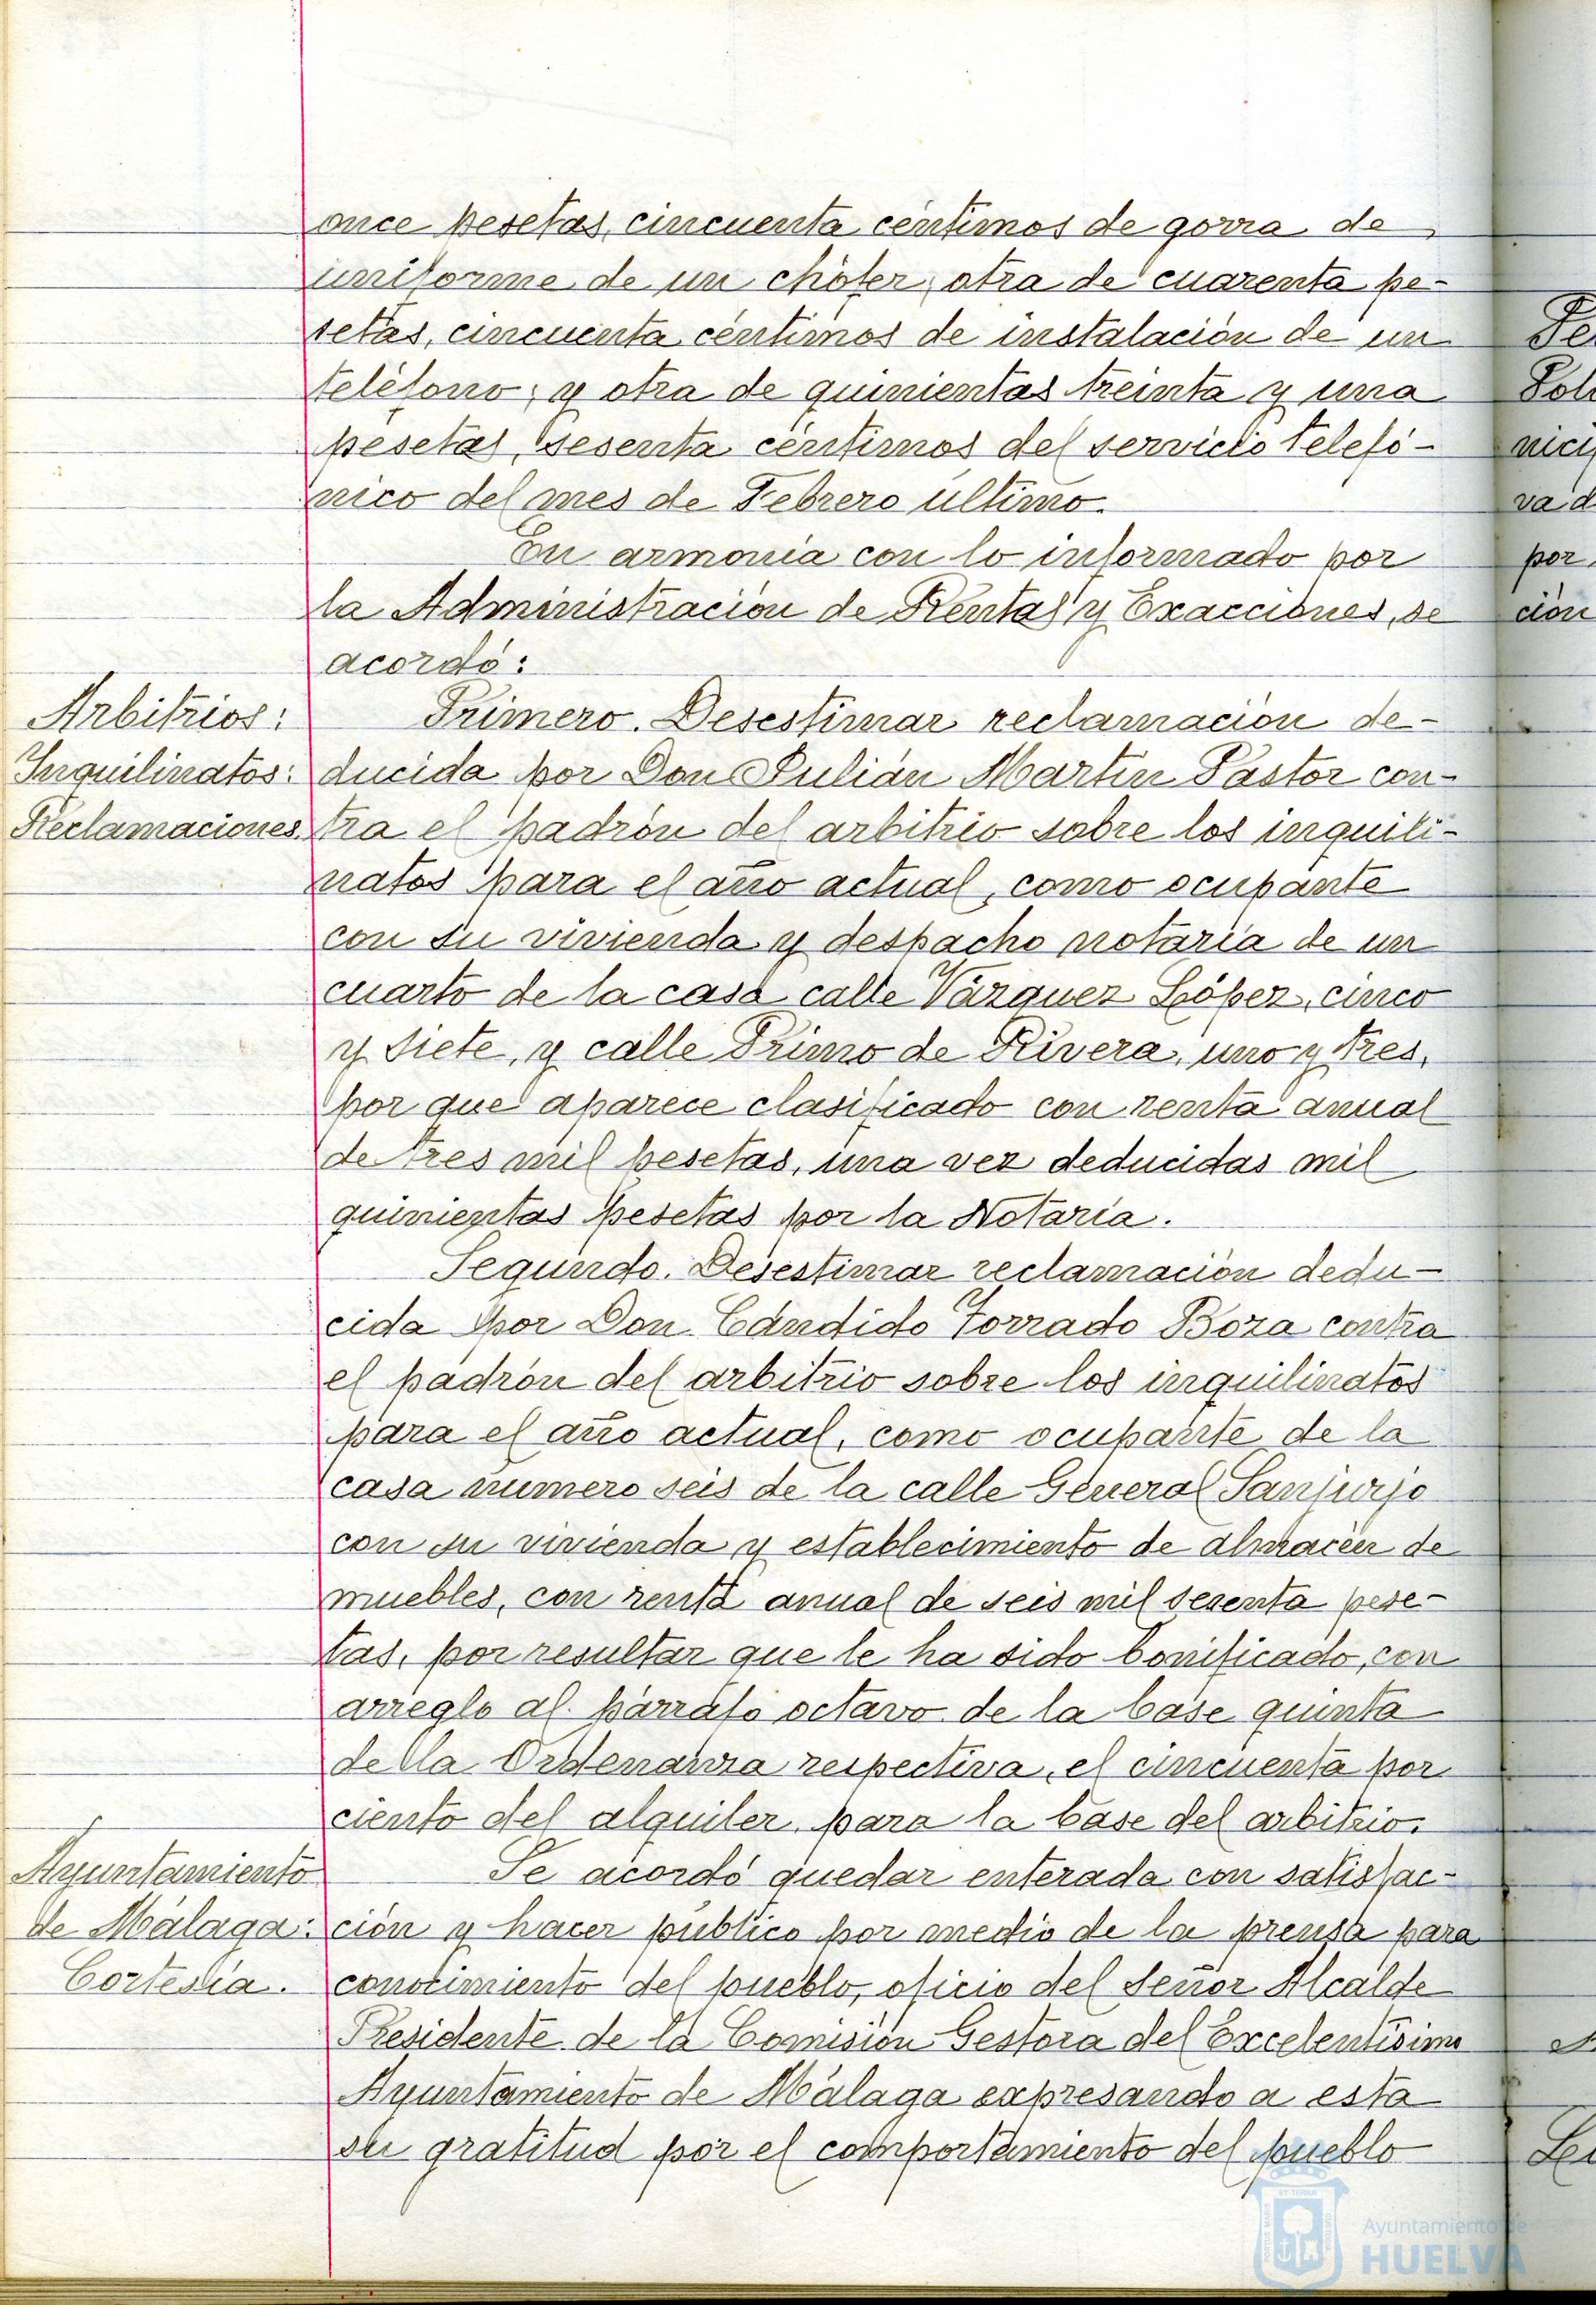 once pesetas, cincuenta céntimos de gorra de
uniforme de un chófer; otra de cuarenta pe-
setas, cincuenta céntimos de instalación de un
teléfono; y otra de quinientas treinta y una
pesetas, sesenta céntimos del servicio telefó-
nico del mes de Febrero último.
En armonía con lo informado por
la Administración de Rentas y Exacciones, se
acordó:
Arbitrios:
Inquilinatos:
Reclamaciones.
Primero. Desestimar reclamación de-
ducida por Don Julián Martín Pastor con-
tra el padrón del arbitrio sobre los inquili-
natos para el año actual, como ocupante
con su vivienda y despacho notaría de un
cuarto de la casa calle Vázquez López, cinco
y siete, y calle Primo de Rivera, uno y tres,
por que aparece clasificado con renta anual
de tres mil pesetas, una vez deducidas mil
quinientas pesetas por la Notaría.
Segundo. Desestimar reclamación dedu-
cida por Don Cándido Torrado Boza contra
el padrón del arbitrio sobre los inquilinatos
para el año actual, como ocupante de la
casa número seis de la calle General Sanjurjo
con su vivienda y establecimiento de almacén de
muebles, con renta anual de seis mil sesenta pese-
tas, por resultar que le ha sido bonificado, con
arreglo al párrafo octavo de la base quinta
de la Ordenanza respectiva, el cincuenta por
ciento del alquiler para la base del arbitrio.
Ayuntamiento
de Málaga:
Cortesía.
Se acordó quedar enterada con satisfac-
ción y hacer público por medio de la prensa para
conocimiento del pueblo, oficio del Señor Alcalde
Presidente de la Comisión Gestora del Excelentísimo
Ayuntamiento de Málaga expresando a esta
su gratitud por el comportamiento del pueblo
Pol
nici
va d
por
ción
Ayuntamiento de
HUELVA